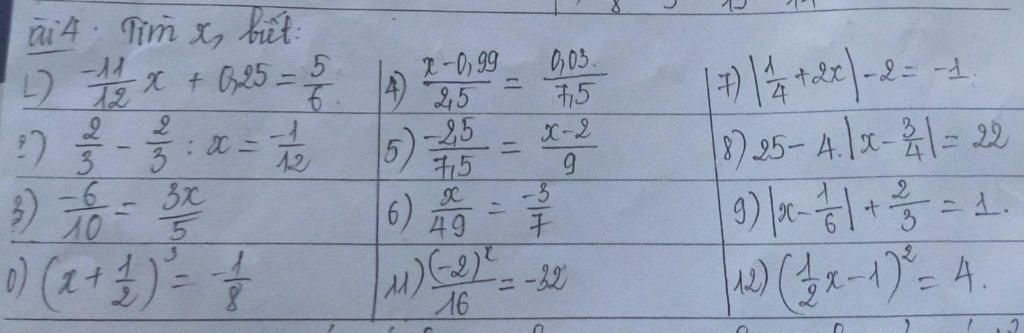 ài 4. Tìm x, biết:
1) -11/12 x + 0,25 = 5/6. 4) x-0,99/2,5 = 0,03./7,5 7) |1/4 + 2x| - 2 = -1.
2) 2/3 - 2/3 : x = -1/12 5) -2,5/7,5 = x-2/9 8) 25 - 4.|x - 3/4| = 22
3) -6/10 = 3x/5 6) x/49 = -3/7 9) |x - 1/6| + 2/3 = 1.
0) (x + 1/2)³ = -1/8 11) (-2)ˣ/16 = -32 12) (1/2 x - 1)² = 4.